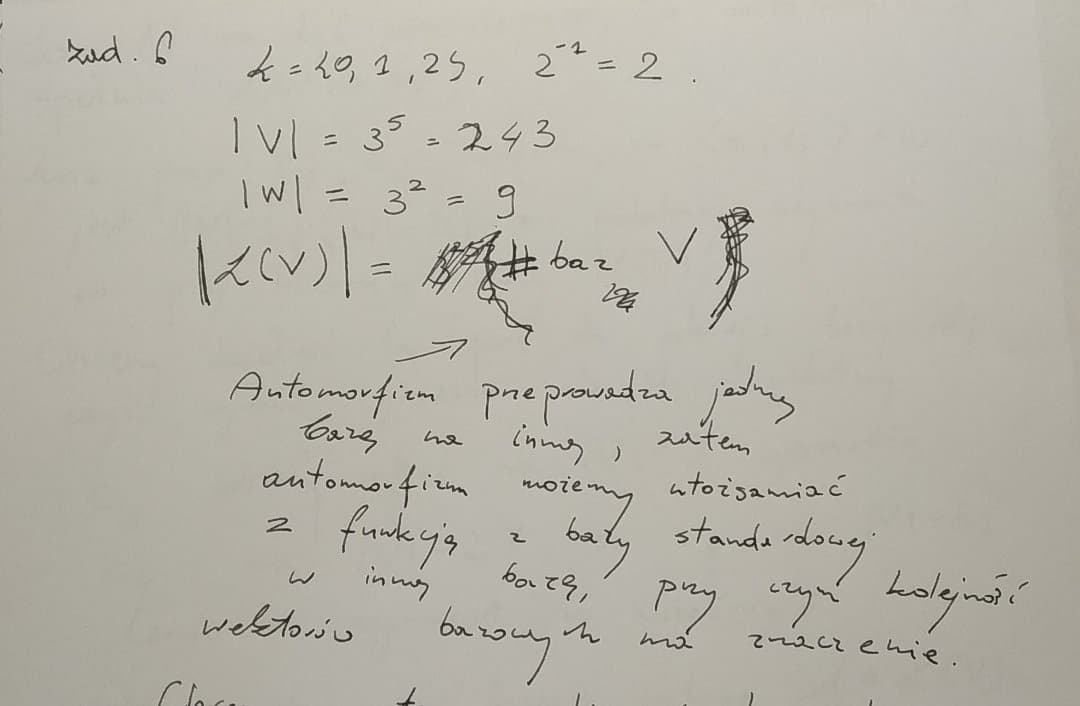 zad. 6 k = {0, 1, 2}, 2⁻¹ = 2.
|V| = 3⁵ = 243
|W| = 3² = 9
|L(V)| = # baz V
Automorfizm przeprowadza jedną
bazę na inną, zatem
automorfizm możemy utożsamiać
z funkcją z bazy standardowej
w inną bazę, przy czym kolejność
wektorów bazowych ma znaczenie.